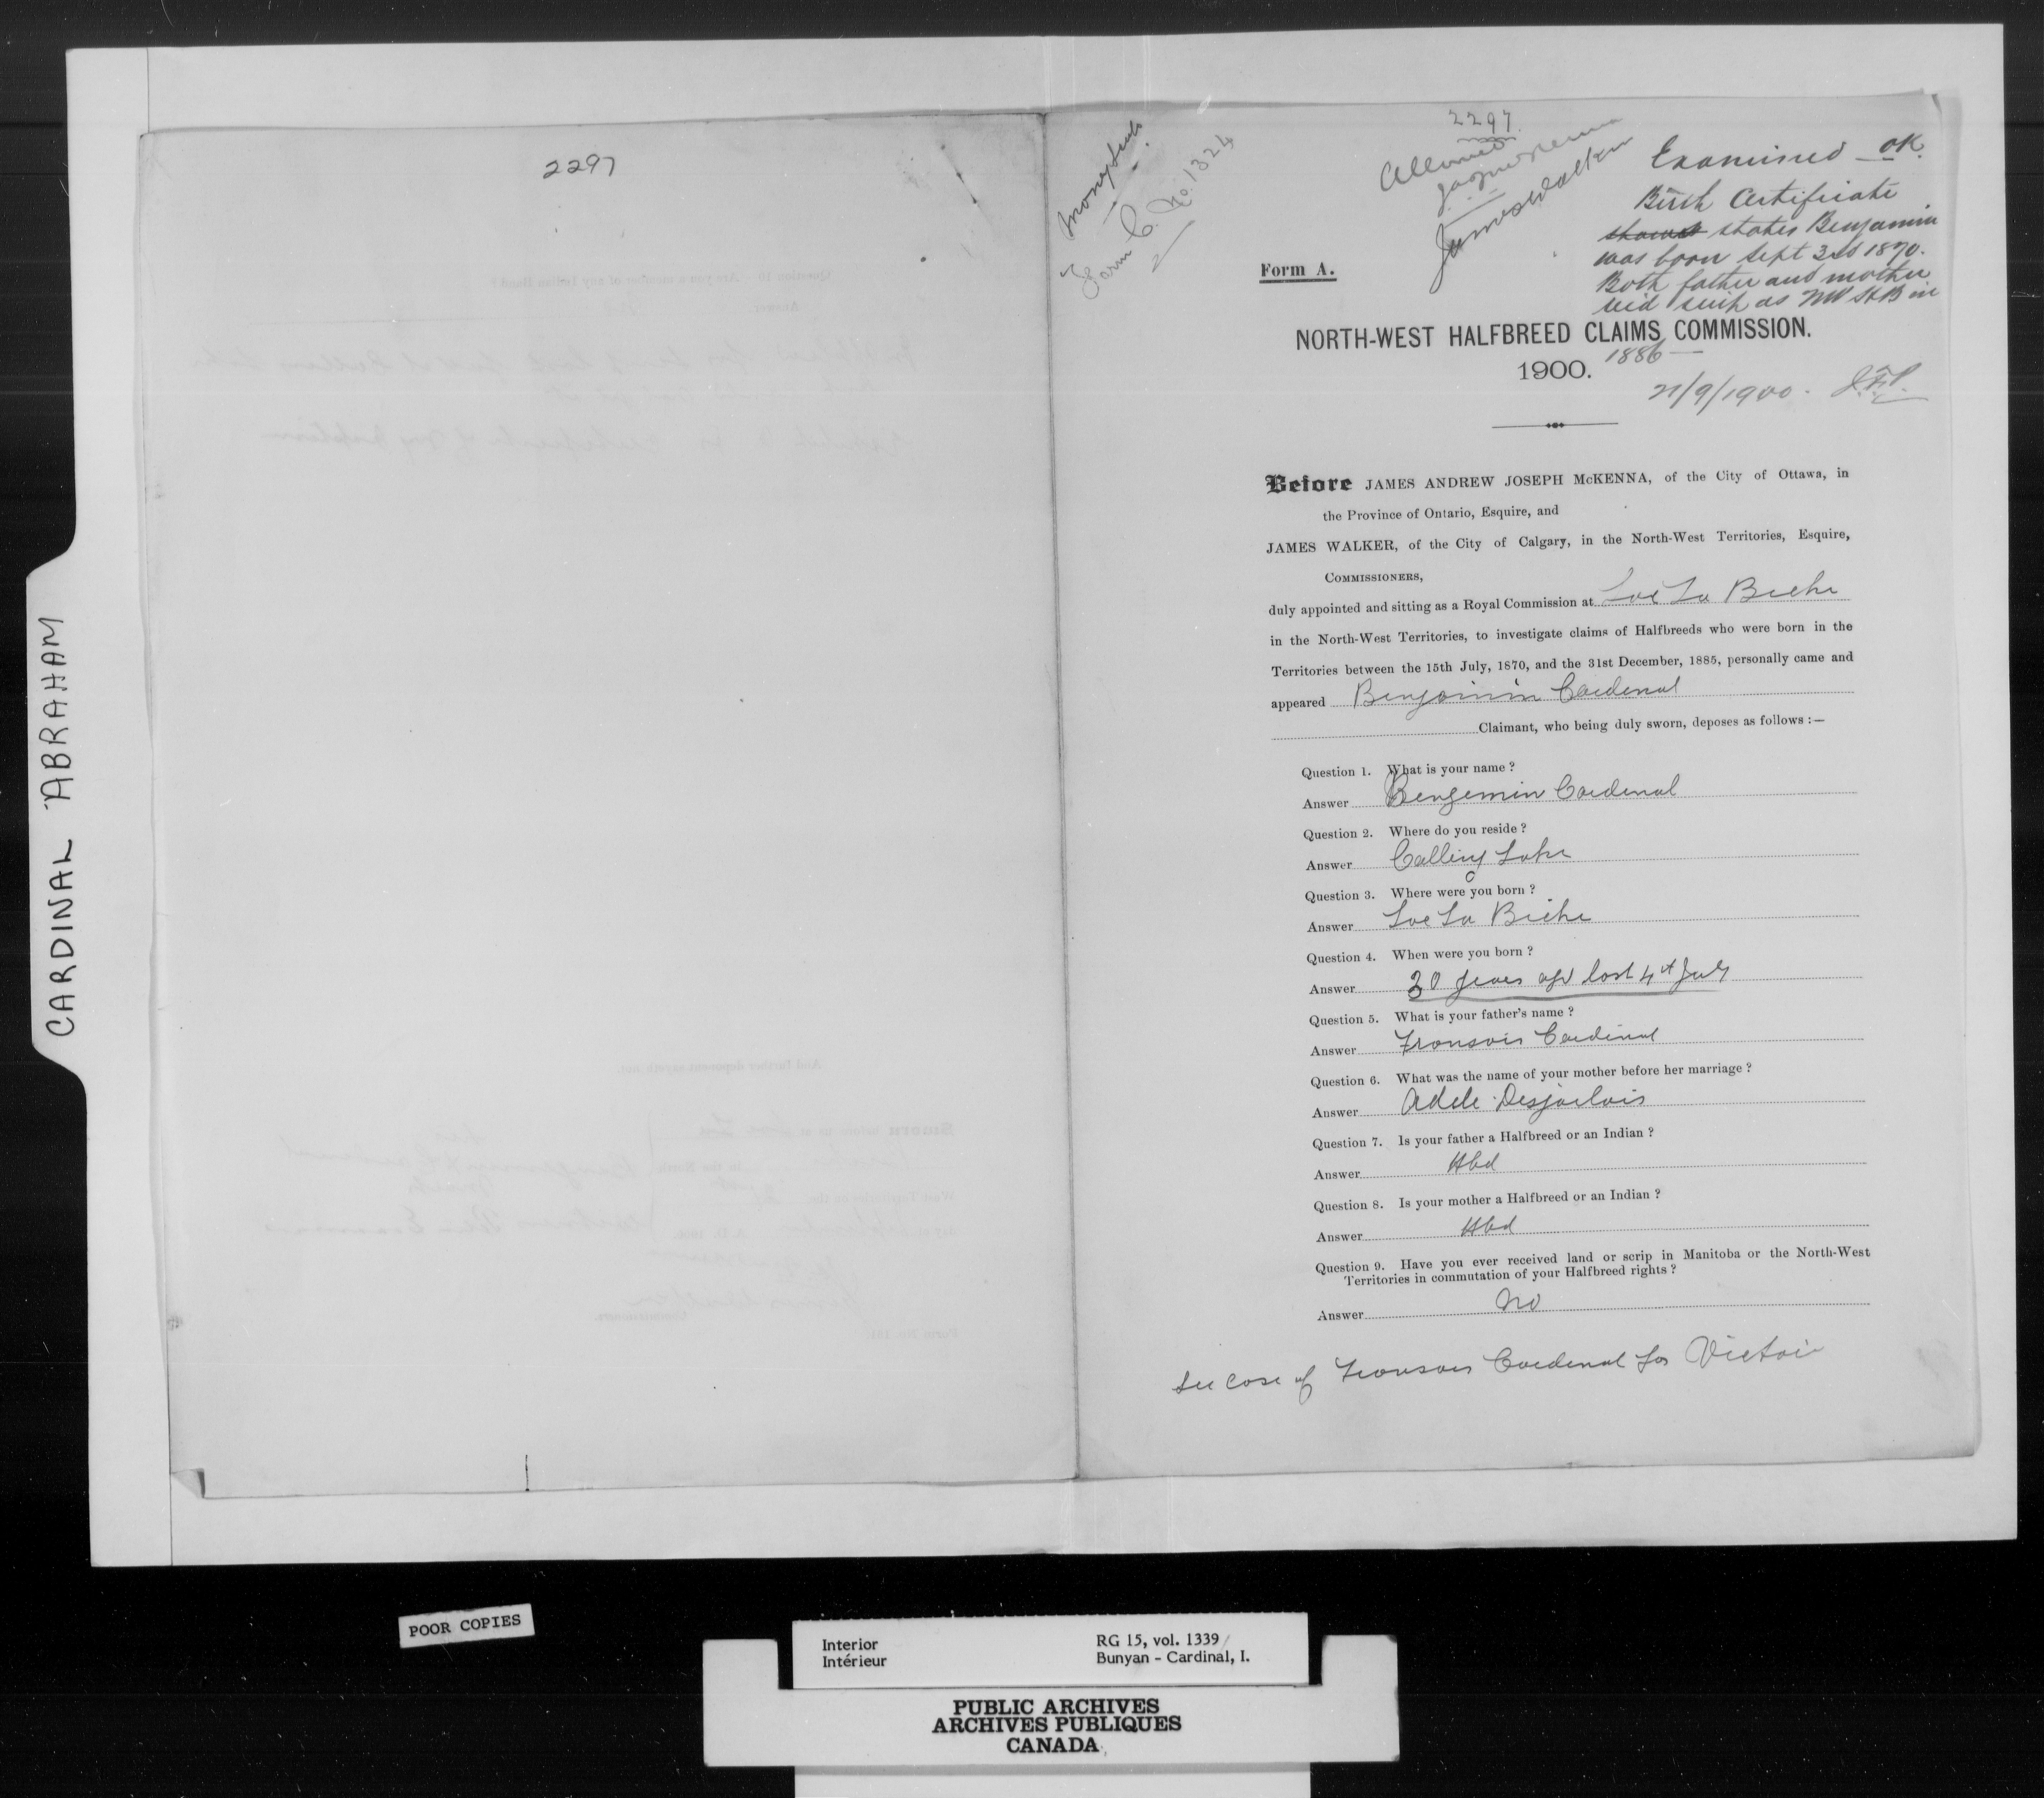 CARDINAL ABRAHAM
2297
Money Scrip
Form C. No. 1324
2297
Allowed
J.A.J. McKenna
James Walker
Examined OK
Birth Certificate
shows states Benjamin
was born Sept 3rd 1870.
Both father and mother
recd scrip as NW HB in
1886
21/9/1900. J.F.P.
Form A.
NORTH-WEST HALFBREED CLAIMS COMMISSION.
1900.
Before JAMES ANDREW JOSEPH McKENNA, of the City of Ottawa, in
the Province of Ontario, Esquire, and
JAMES WALKER, of the City of Calgary, in the North-West Territories, Esquire,
COMMISSIONERS,
duly appointed and sitting as a Royal Commission at Lac La Biche
in the North-West Territories, to investigate claims of Halfbreeds who were born in the
Territories between the 15th July, 1870, and the 31st December, 1885, personally came and
appeared Benjamin Cardenal
Claimant, who being duly sworn, deposes as follows :—
Question 1. What is your name ?
Answer Bengemin Cardenal
Question 2. Where do you reside ?
Answer Calling Lake
Question 3. Where were you born ?
Answer Lac La Biche
Question 4. When were you born ?
Answer 30 years ago last 4th July
Question 5. What is your father's name ?
Answer Fransois Cardinal
Question 6. What was the name of your mother before her marriage ?
Answer Adele Desjarlais
Question 7. Is your father a Halfbreed or an Indian ?
Answer Hbd
Question 8. Is your mother a Halfbreed or an Indian ?
Answer Hbd
Question 9. Have you ever received land or scrip in Manitoba or the North-West
Territories in commutation of your Halfbreed rights ?
Answer No
See case of Fransois Cardenal for Victoir
POOR COPIES
Interior
Intérieur
RG 15, vol. 1339
Bunyan - Cardinal, I.
PUBLIC ARCHIVES
ARCHIVES PUBLIQUES
CANADA